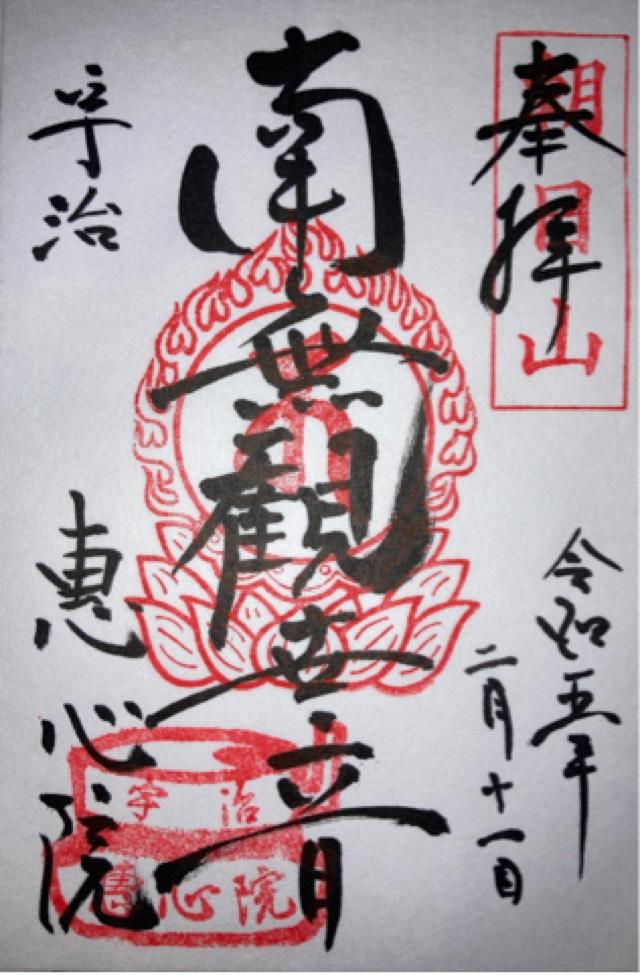 奉拝
朝日山
令和五年
二月十一日
南無觀世音
宇治
恵心院
宇治
恵心院